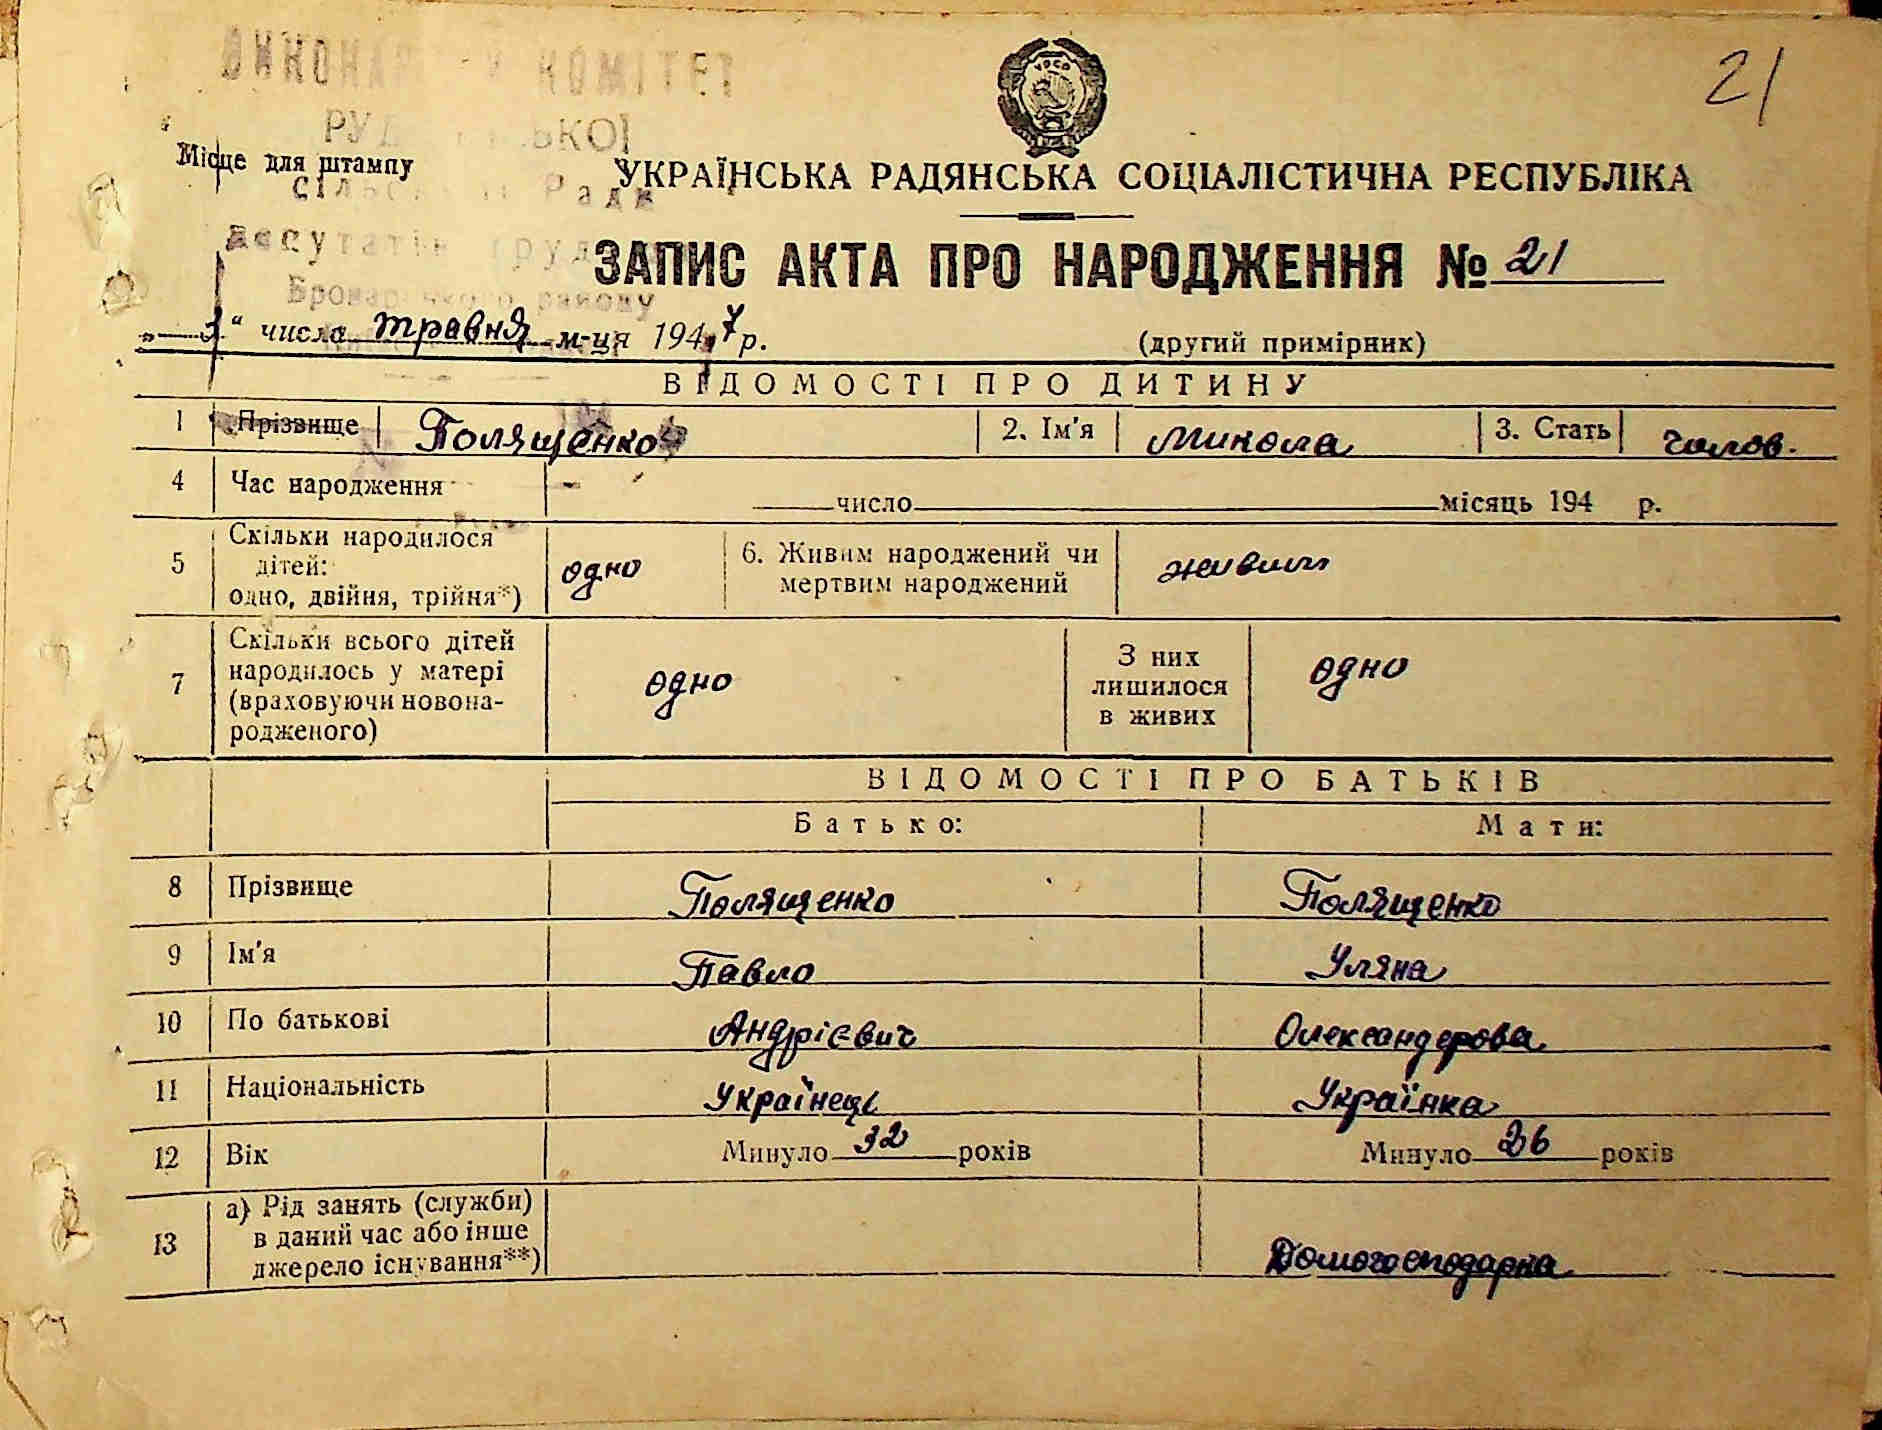 21
ВИКОНА КОМІТЕТ
РУД ЬКОЇ
Місце для штампу
Ради
УКРАЇНСЬКА РАДЯНСЬКА СОЦІАЛІСТИЧНА РЕСПУБЛІКА
депутатів труд
ЗАПИС АКТА ПРО НАРОДЖЕННЯ № 21
Бровар ького району
числа травня м-ця 1947 р.
(другий примірник)
ВІДОМОСТІ ПРО ДИТИНУ
1 Прізвище Полященко 2. Ім'я Микола 3. Стать чолов.
4 Час народження число місяць 194 р.
5 Скільки народилося
дітей:
одно, двійня, трійня*) одно
6. Живим народжений чи
мертвим народжений живим
7 Скільки всього дітей
народилось у матері
(враховуючи новона-
родженого) одно
З них
лишилося
в живих одно
ВІДОМОСТІ ПРО БАТЬКІВ
Батько: Мати:
8 Прізвище Полященко Полященко
9 Ім'я Павло Уляна
10 По батькові Андрієвич Олександерова
11 Національність Українець Українка
12 Вік Минуло 32 років Минуло 26 років
13 а) Рід занять (служби)
в даний час або інше
джерело існування**) Домогосподарка